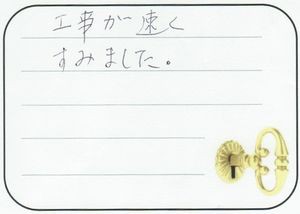 工事が速く
すみました。